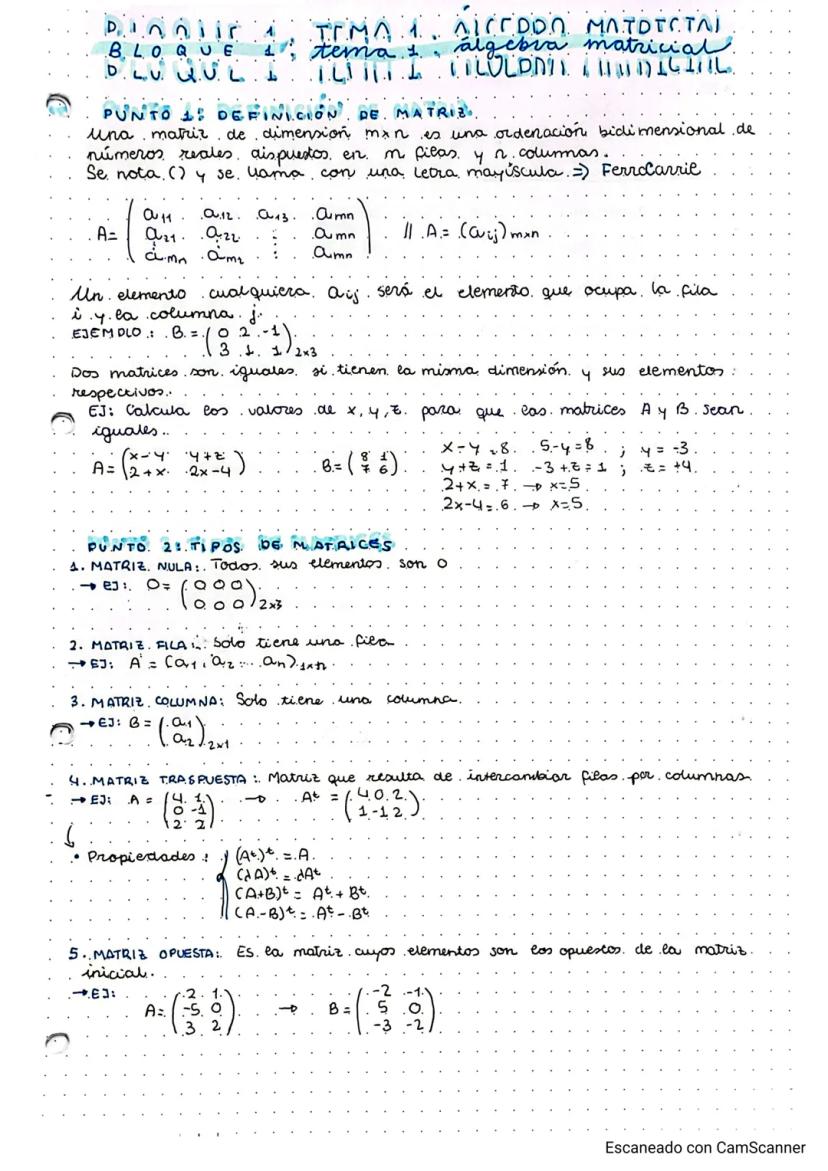 BLOQUE 1: tema 1. álgebra matricial
PUNTO 1: DEFINICIÓN DE MATRIZ.
Una matriz de dimensión mxn es una ordenación bidimensional de
números reales dispuestos en m filas y n columnas.
Se nota () y se llama con una letra mayúscula => FerroCarril
A= ( a11 a12 a13 amn
a21 a22 ⋮ amn
amn am2 ⋮ amn ) // A = (aij) mxn
Un elemento cualquiera aij será el elemento que ocupa la fila
i y la columna j.
EJEMPLO: B = ( 0 2 -1
3 1 1 ) 2x3
Dos matrices son iguales si tienen la misma dimensión y sus elementos
respectivos.
EJ: Calcula los valores de x, y, z para que las matrices A y B sean
iguales.
A = ( x-y y+z
2+x 2x-4 ) B = ( 8 1
7 6 )
x-y=8 5-y=8 ; y = -3
y+z=1 -3+z=1 ; z = +4
2+x=7 → x=5
2x-4=6 → x=5
PUNTO 2: TIPOS DE MATRICES
1. MATRIZ NULA: Todos sus elementos son 0
→ EJ: O = ( 0 0 0
0 0 0 ) 2x3
2. MATRIZ FILA: Solo tiene una fila
→ EJ: A = (a1, a2 ... an) 1xn
3. MATRIZ COLUMNA: Solo tiene una columna.
→ EJ: B = ( a1
a2 ) 2x1
4. MATRIZ TRASPUESTA: Matriz que resulta de intercambiar filas por columnas
→ EJ: A = ( 4 1
0 -1
2 2 ) → At = ( 4 0 2
1 -1 2 )
• Propiedades: (At)t = A
(λA)t = λAt
(A+B)t = At + Bt
(A-B)t = At - Bt
5. MATRIZ OPUESTA: Es la matriz cuyos elementos son los opuestos de la matriz
inicial.
→ EJ:
A= ( 2 1
-5 0
3 2 ) → B = ( -2 -1
5 0
-3 -2 )
Escaneado con CamScanner